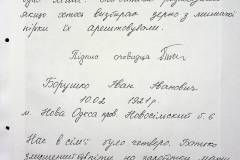 якщо хтось визбирав зерно з мишачої
нірки їх арештовували.
Підпис очевидця
Борушко Іван Іванович
10.02 1921 г.
м. Нова Одеса пров. Новосільский б. 6
Нас в сім'ї було четверо. Батько